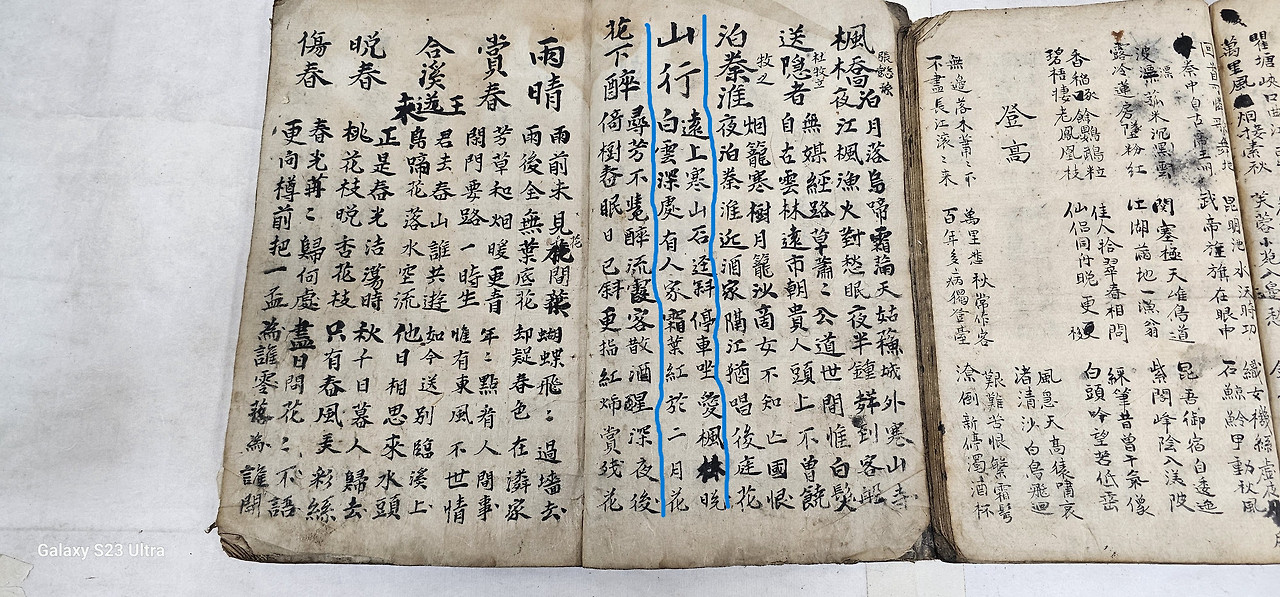 瞿塘峽口曲
萬里風烟接素秋 芙蓉小苑入邊愁
秦中自古帝王州 昆明池水漢時功 織女機絲虛夜月
武帝旌旗在眼中 石鯨鱗甲動秋風
波漂菰米沉雲黑 關塞極天唯鳥道 昆吾御宿自逶迤
露冷蓮房墜粉紅 江湖滿地一漁翁 紫閣峰陰入渼陂
香稻啄餘鸚鵡粒 佳人拾翠春相問 綵筆昔曾干氣像
碧梧棲老鳳凰枝 仙侶同舟晚更移 白頭吟望苦低垂
登高 風急天高猿嘯哀
渚清沙白鳥飛迴
無邊落木蕭々下 萬里悲秋常作客 艱難苦恨繁霜鬢
不盡長江滾々来 百年多病獨登臺 潦倒新停濁酒杯
張繼
楓橋夜泊 月落烏啼霜滿天 姑蘇城外寒山寺
江楓漁火對愁眠 夜半鐘聲到客船
杜牧之
送隐者 無媒經路草蕭々 公道世間惟白髮
自古雲林遠市朝 貴人頭上不曾饒
牧之
泊秦淮 烟籠寒樹月籠沙 商女不知亡國恨
夜泊秦淮近酒家 隔江猶唱後庭花
山行 遠上寒山石逕斜 停車坐愛楓林晚
白雲深處有人家 霜葉紅於二月花
花下醉 尋芳不覺醉流霞 客散酒醒深夜後
倚樹春眠日已斜 更指紅燭賞殘花
雨晴 雨前未見花間葉 蝴蝶飛々過墻去
雨後全無葉底花 却疑春色在鄰家
賞春 芳草和烟暖更青 年々點省人間事
閑門要路一時生 惟有東風不世情
合溪送王来 君去春山誰共遊 如今送別臨溪上
鳥啼花落水空流 他日相思來水頭
晚春 正是春光洁蕩時 秋千日暮人歸去
桃花枝晚杏花枝 只有春風美彩絲
傷春 春光冉々歸何處 盡日問花々不語
更向樽前把一盃 為誰零落為誰開
Galaxy S23 Ultra